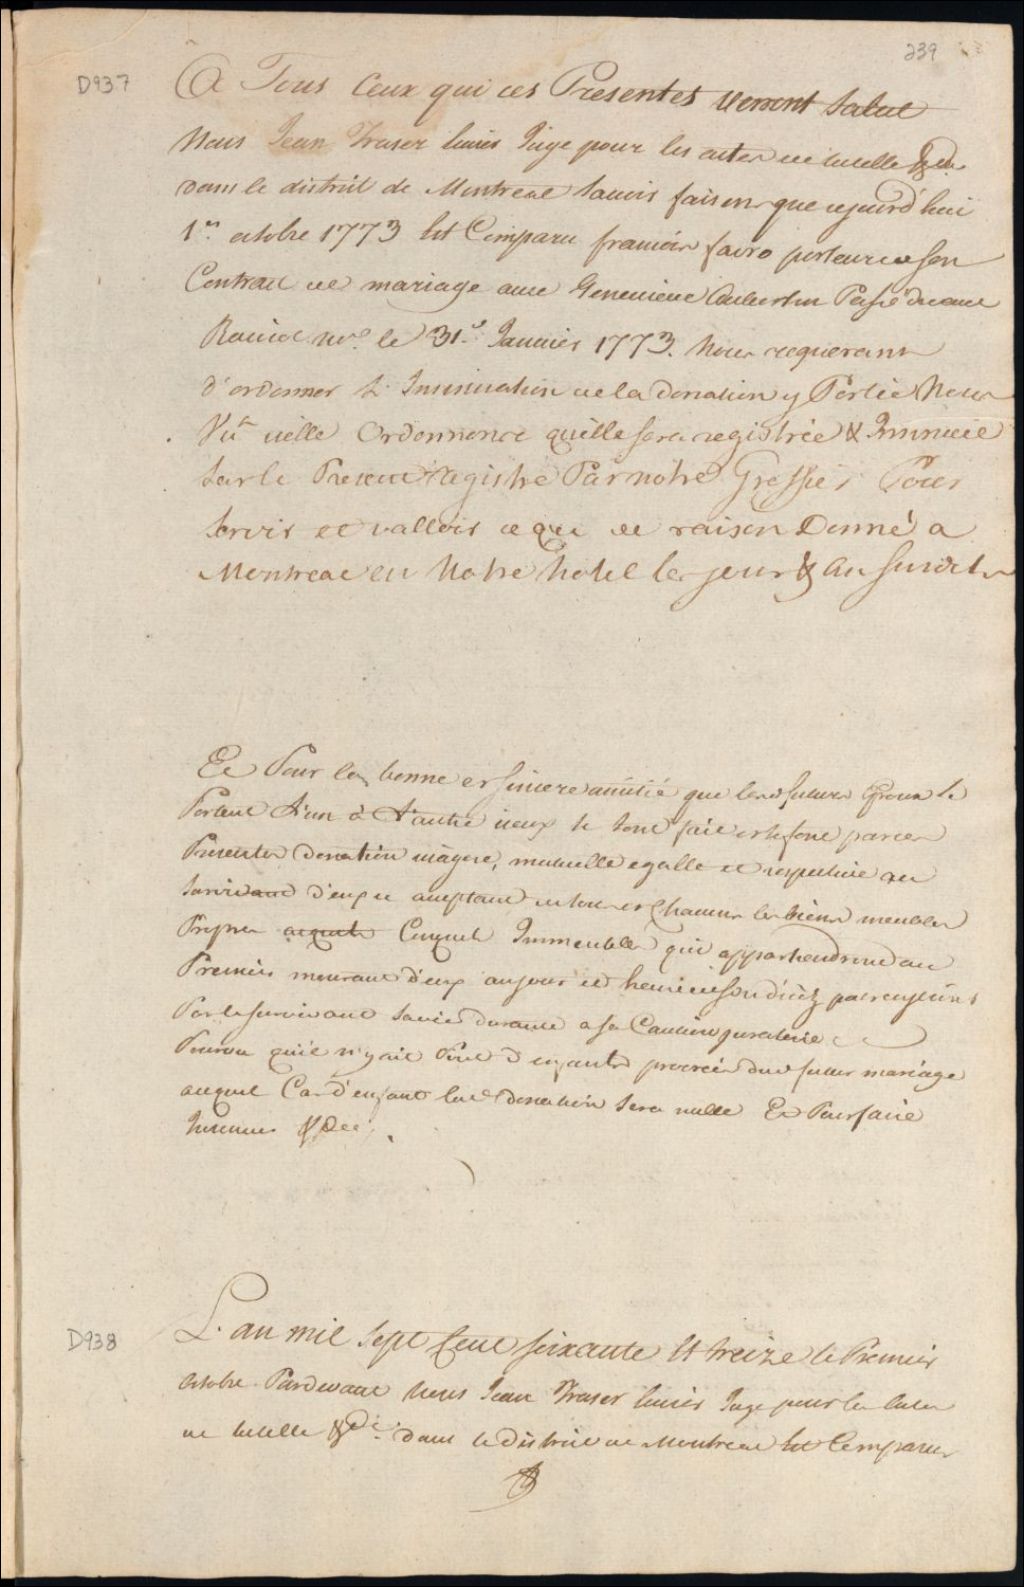 239
D937
A Tous Ceux qui ces Presentes verront Salut
Nous Jean Fraser Ecuier Juge pour les actes de tutelle &c.
dans le district de Montreal Savoir faisons que cejourd'hui
1er octobre 1773 Est Comparu francois favro porteur de son
Contrat de mariage avec Genevieve Passé devant
nre. le 31e. Janvier 1773. Nous requerant
d'ordonner L'Insinuation de la Donation y Portée Nous
Vû icelle Ordonnons qu'elle sera registrée & Insinuée
Sur le Present Registre Par notre Greffier Pour
Servir et valloir ce que de raison Donné a
Montreal en Notre hotel les jour & an Susdits
Et Pour la bonne et sincere amitié que les d. futurs Epoux se
Portent L'un à L'autre iceux se sont fait et se font par ces
Presentes donation viagere, mutuelle egalle et reciproque au
survivant d'eux ce acceptant de tous et Chacuns les biens meubles
Propres acquets Conquets Immeubles qui appartiendront au
Premier mourant d'eux au jour et heure de son décéz pour en jouir
Par le survivant Sa vie durante a sa Caution juratoire
Pourvu qu'il n'y ait Point d'enfants procreés du d. futur mariage
auquel Cas d'enfant la d. donation Sera nulle Et Pour faire
Insinuer &c.
D938
L'an mil Sept Cent soixante Et treize le Premier
octobre Pardevant Nous Jean Fraser Ecuier Juge pour les actes
de tutelle &c. dans le district de Montreal Est Comparu